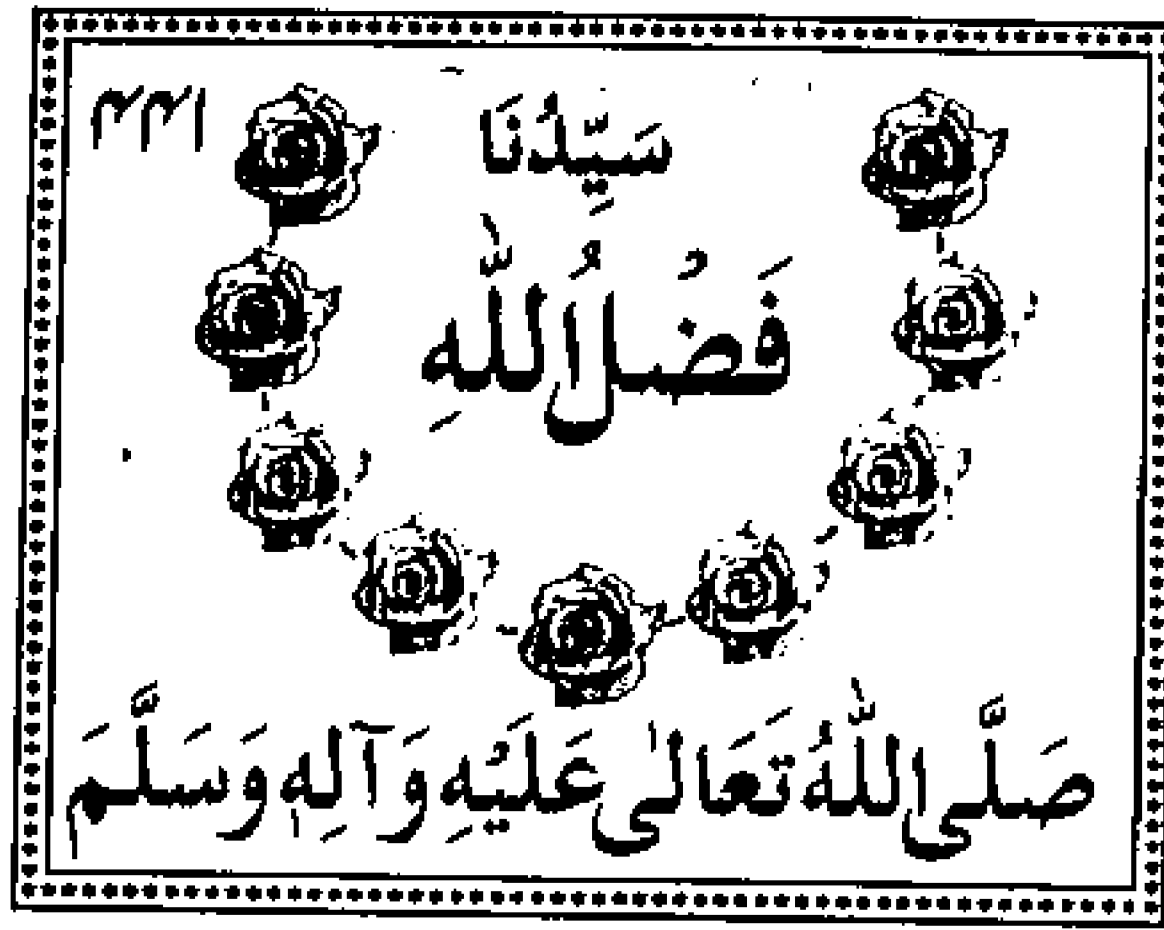 سَيِّدُنَا
فَضْلُ اللّٰهِ
صَلَّى اللّٰهُ تَعَالٰى عَلَيْهِ وَآلِهٖ وَسَلَّمَ